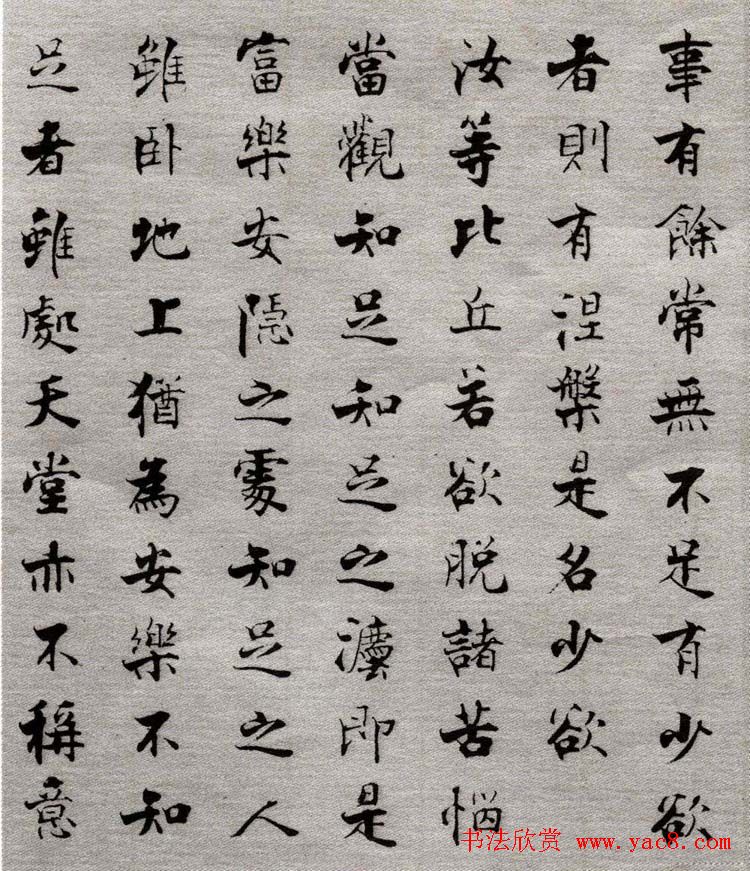 事有餘常無不足有少欲
者則有涅槃是名少欲
汝等比丘若欲脫諸苦惱
當觀知足知足之灋即是
富樂安隱之處知足之人
雖卧地上猶為安樂不知
足者雖處天堂亦不稱意
书法欣赏 www.yac8.com